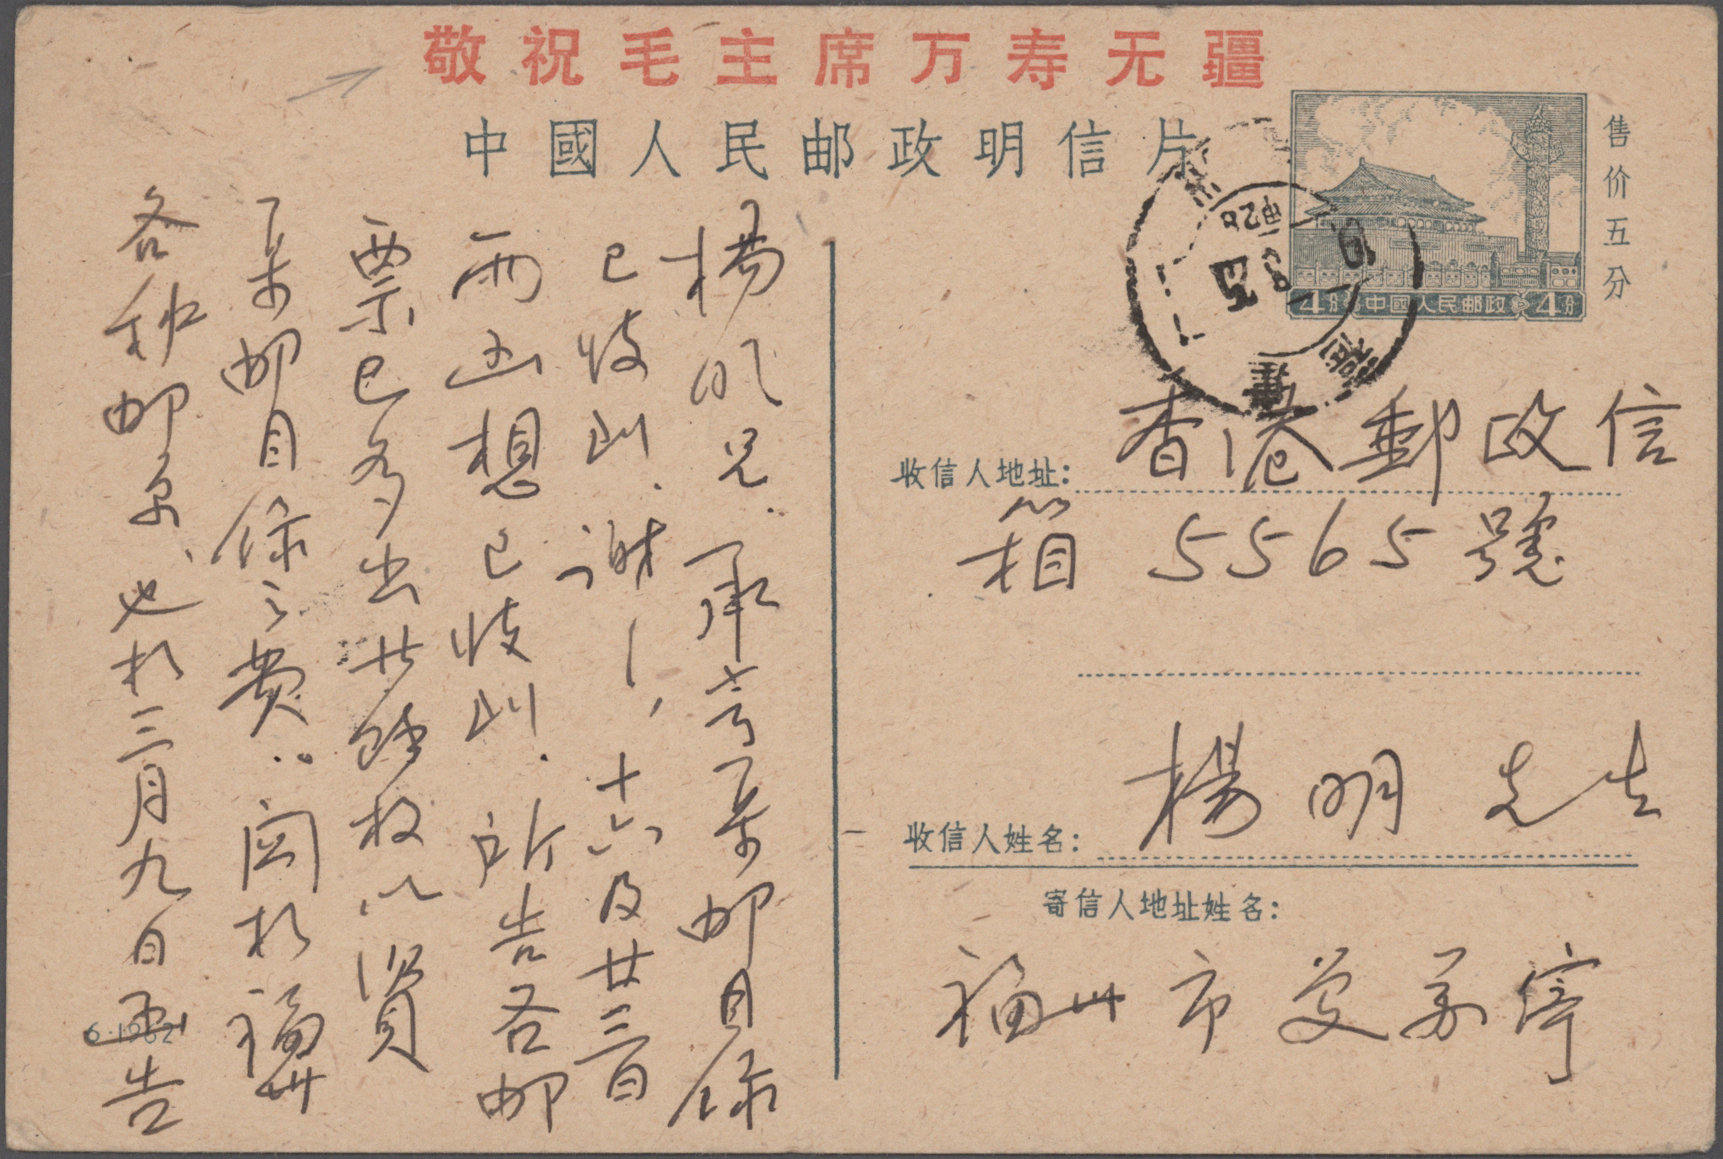 敬祝毛主席万寿无疆
中國人民邮政明信片
售价五分
4分 中國人民邮政 4分
收信人地址：
香港郵政信
箱 5565 號
收信人姓名：
楊明 先生
寄信人地址姓名：
福州市
楊明兄．承寄集邮目錄
已收到．謝〻，十六及廿三日
兩函想已收到．所告各邮
票已多出廿餘枚以資
集邮目錄之費．．関於福州
各种邮票、也於三月九日函告
6-1962